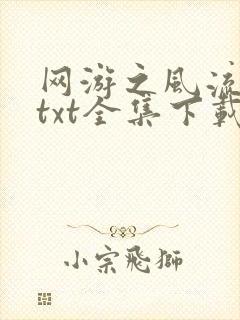 网游之风流
txt全集下载
小宗飛獅